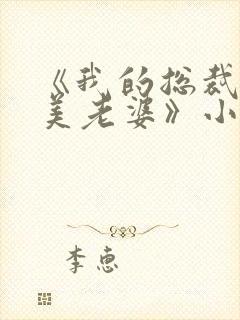 《我的总裁
美老婆》小
李惠